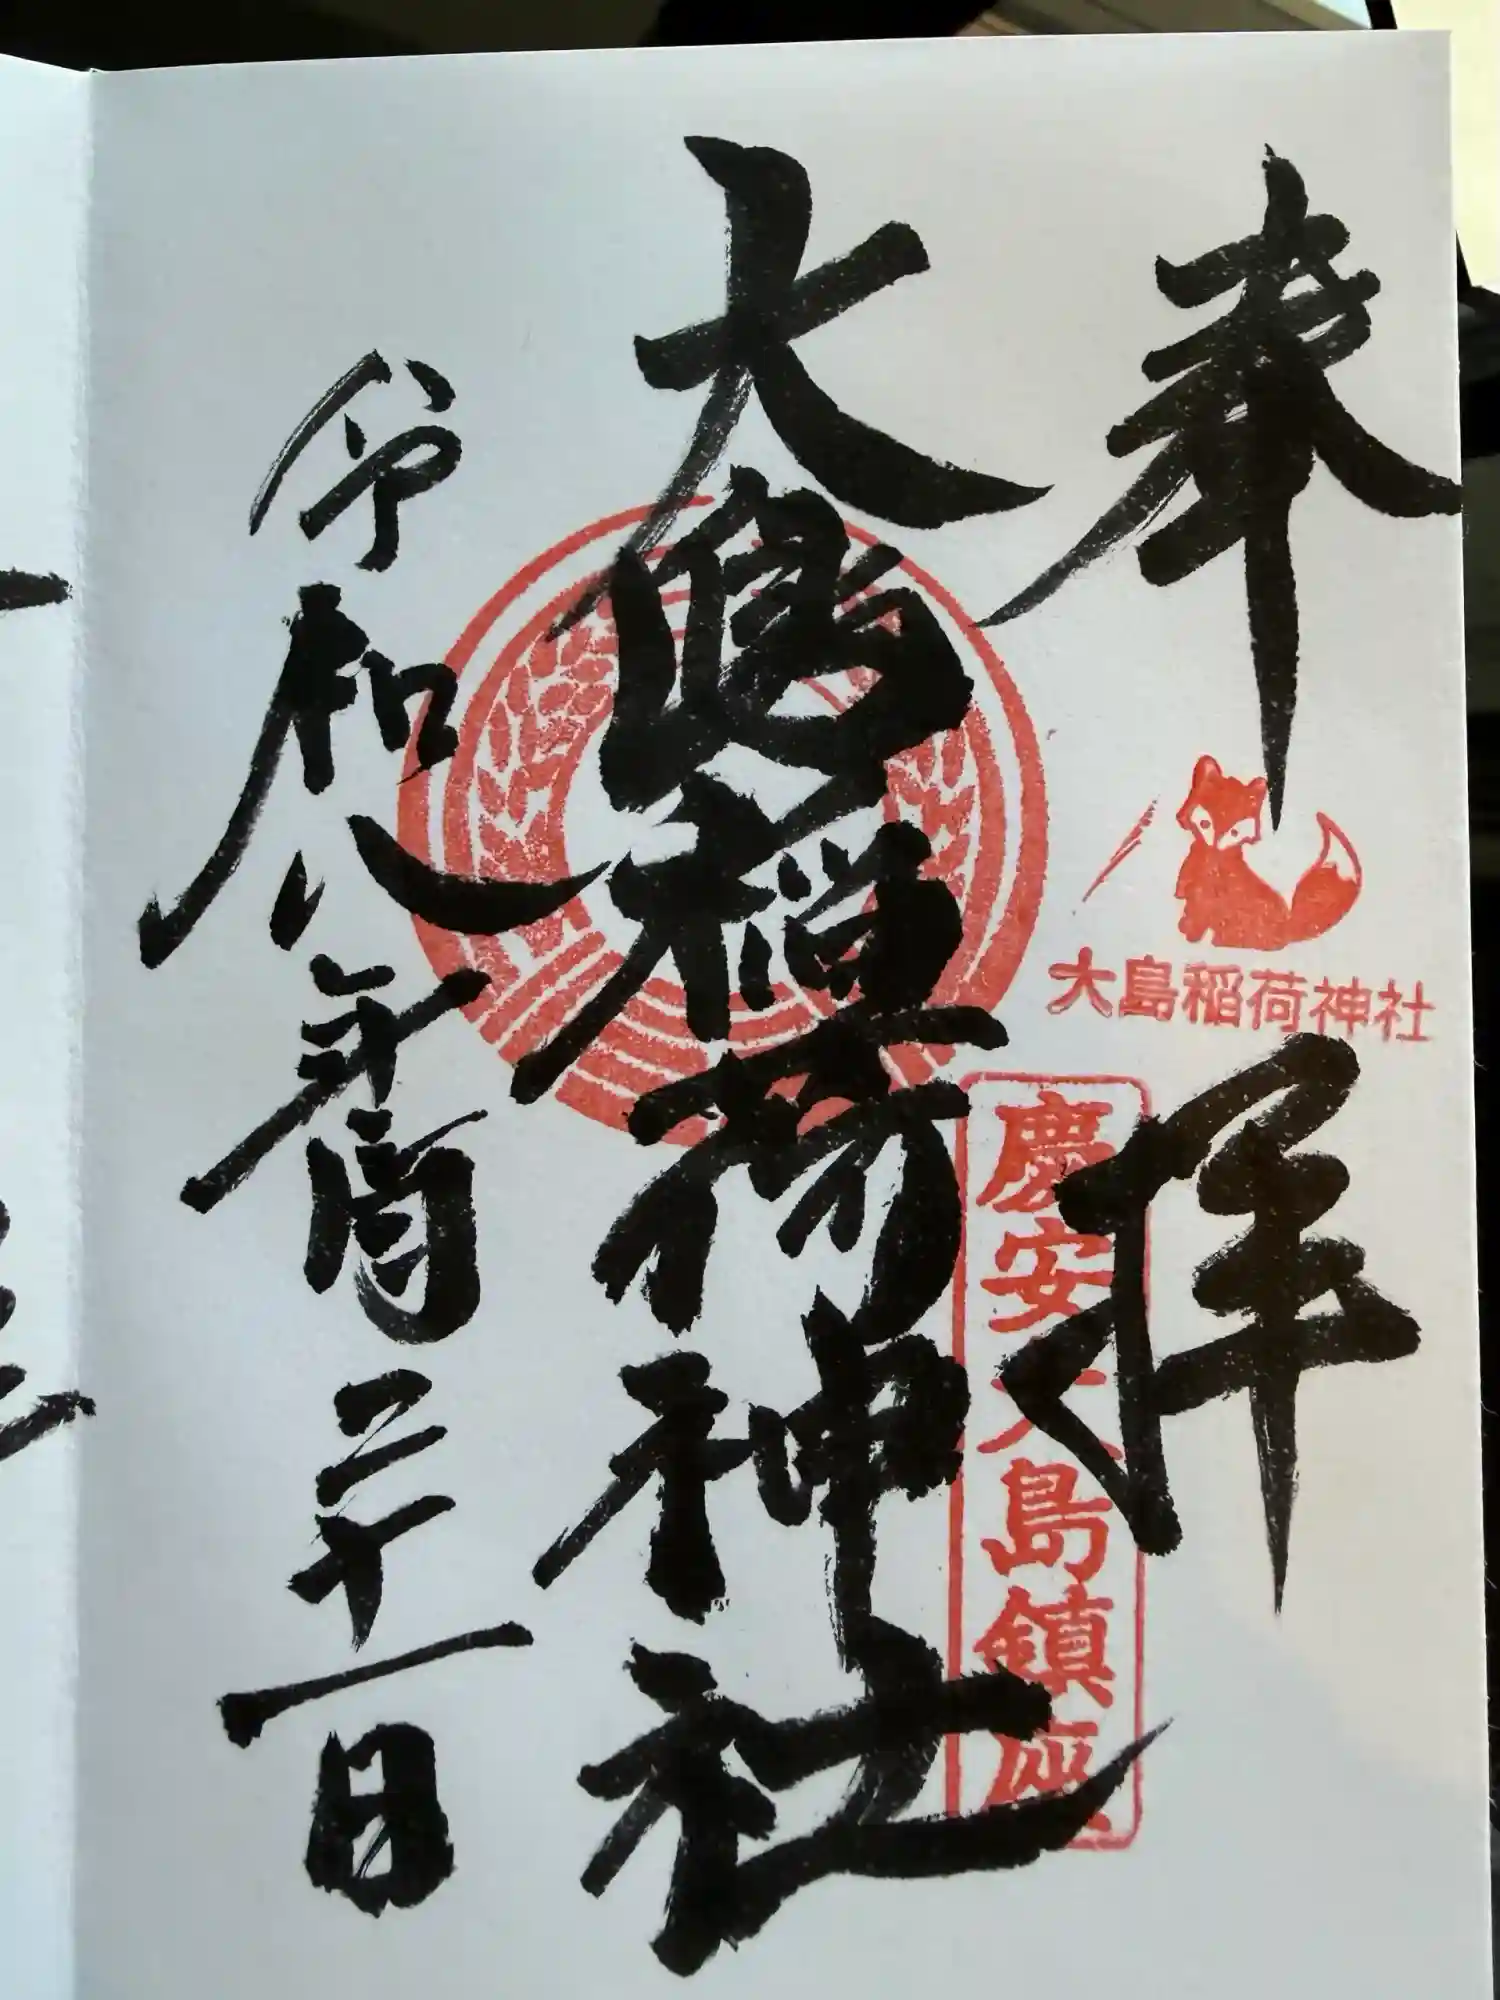 奉拝
大島稲荷神社
慶安大島鎮座
大島稲荷神社
令和八年月二十一日